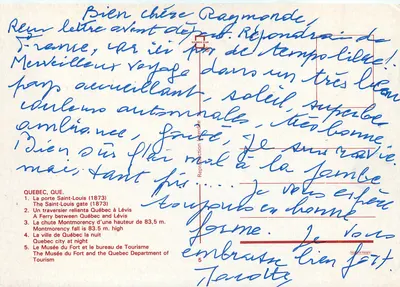 Bien chère Raymonde,
Reçu lettre avant départ. Répondrai de
France, car ici pas de temps libre!
Merveilleux voyage dans un très beau
pays accueillant, soleil, superbe
couleurs automnales, très bonne
ambiance, gaité, je suis ravie.
Bien sûr j'ai mal à la jambe
mais tant pis... je vous espère
toujours en bonne
forme. Je vous
embrasse bien fort.
QUEBEC, QUE.
1. La porte Saint-Louis (1873)
The Saint-Louis gate (1873)
2. Un traversier relienta Québec à Lévis
A Ferry between Québec and Lévis
3. La chute Montmorency d'une hauteur de 83,5 m.
Montmorency fall is 83.5 m. high
4. La ville de Québec la nuit
Quebec city at night
5. Le Musée du Fort et le bureau de Tourisme
The Musée du Fort and the Quebec Department of
Tourism